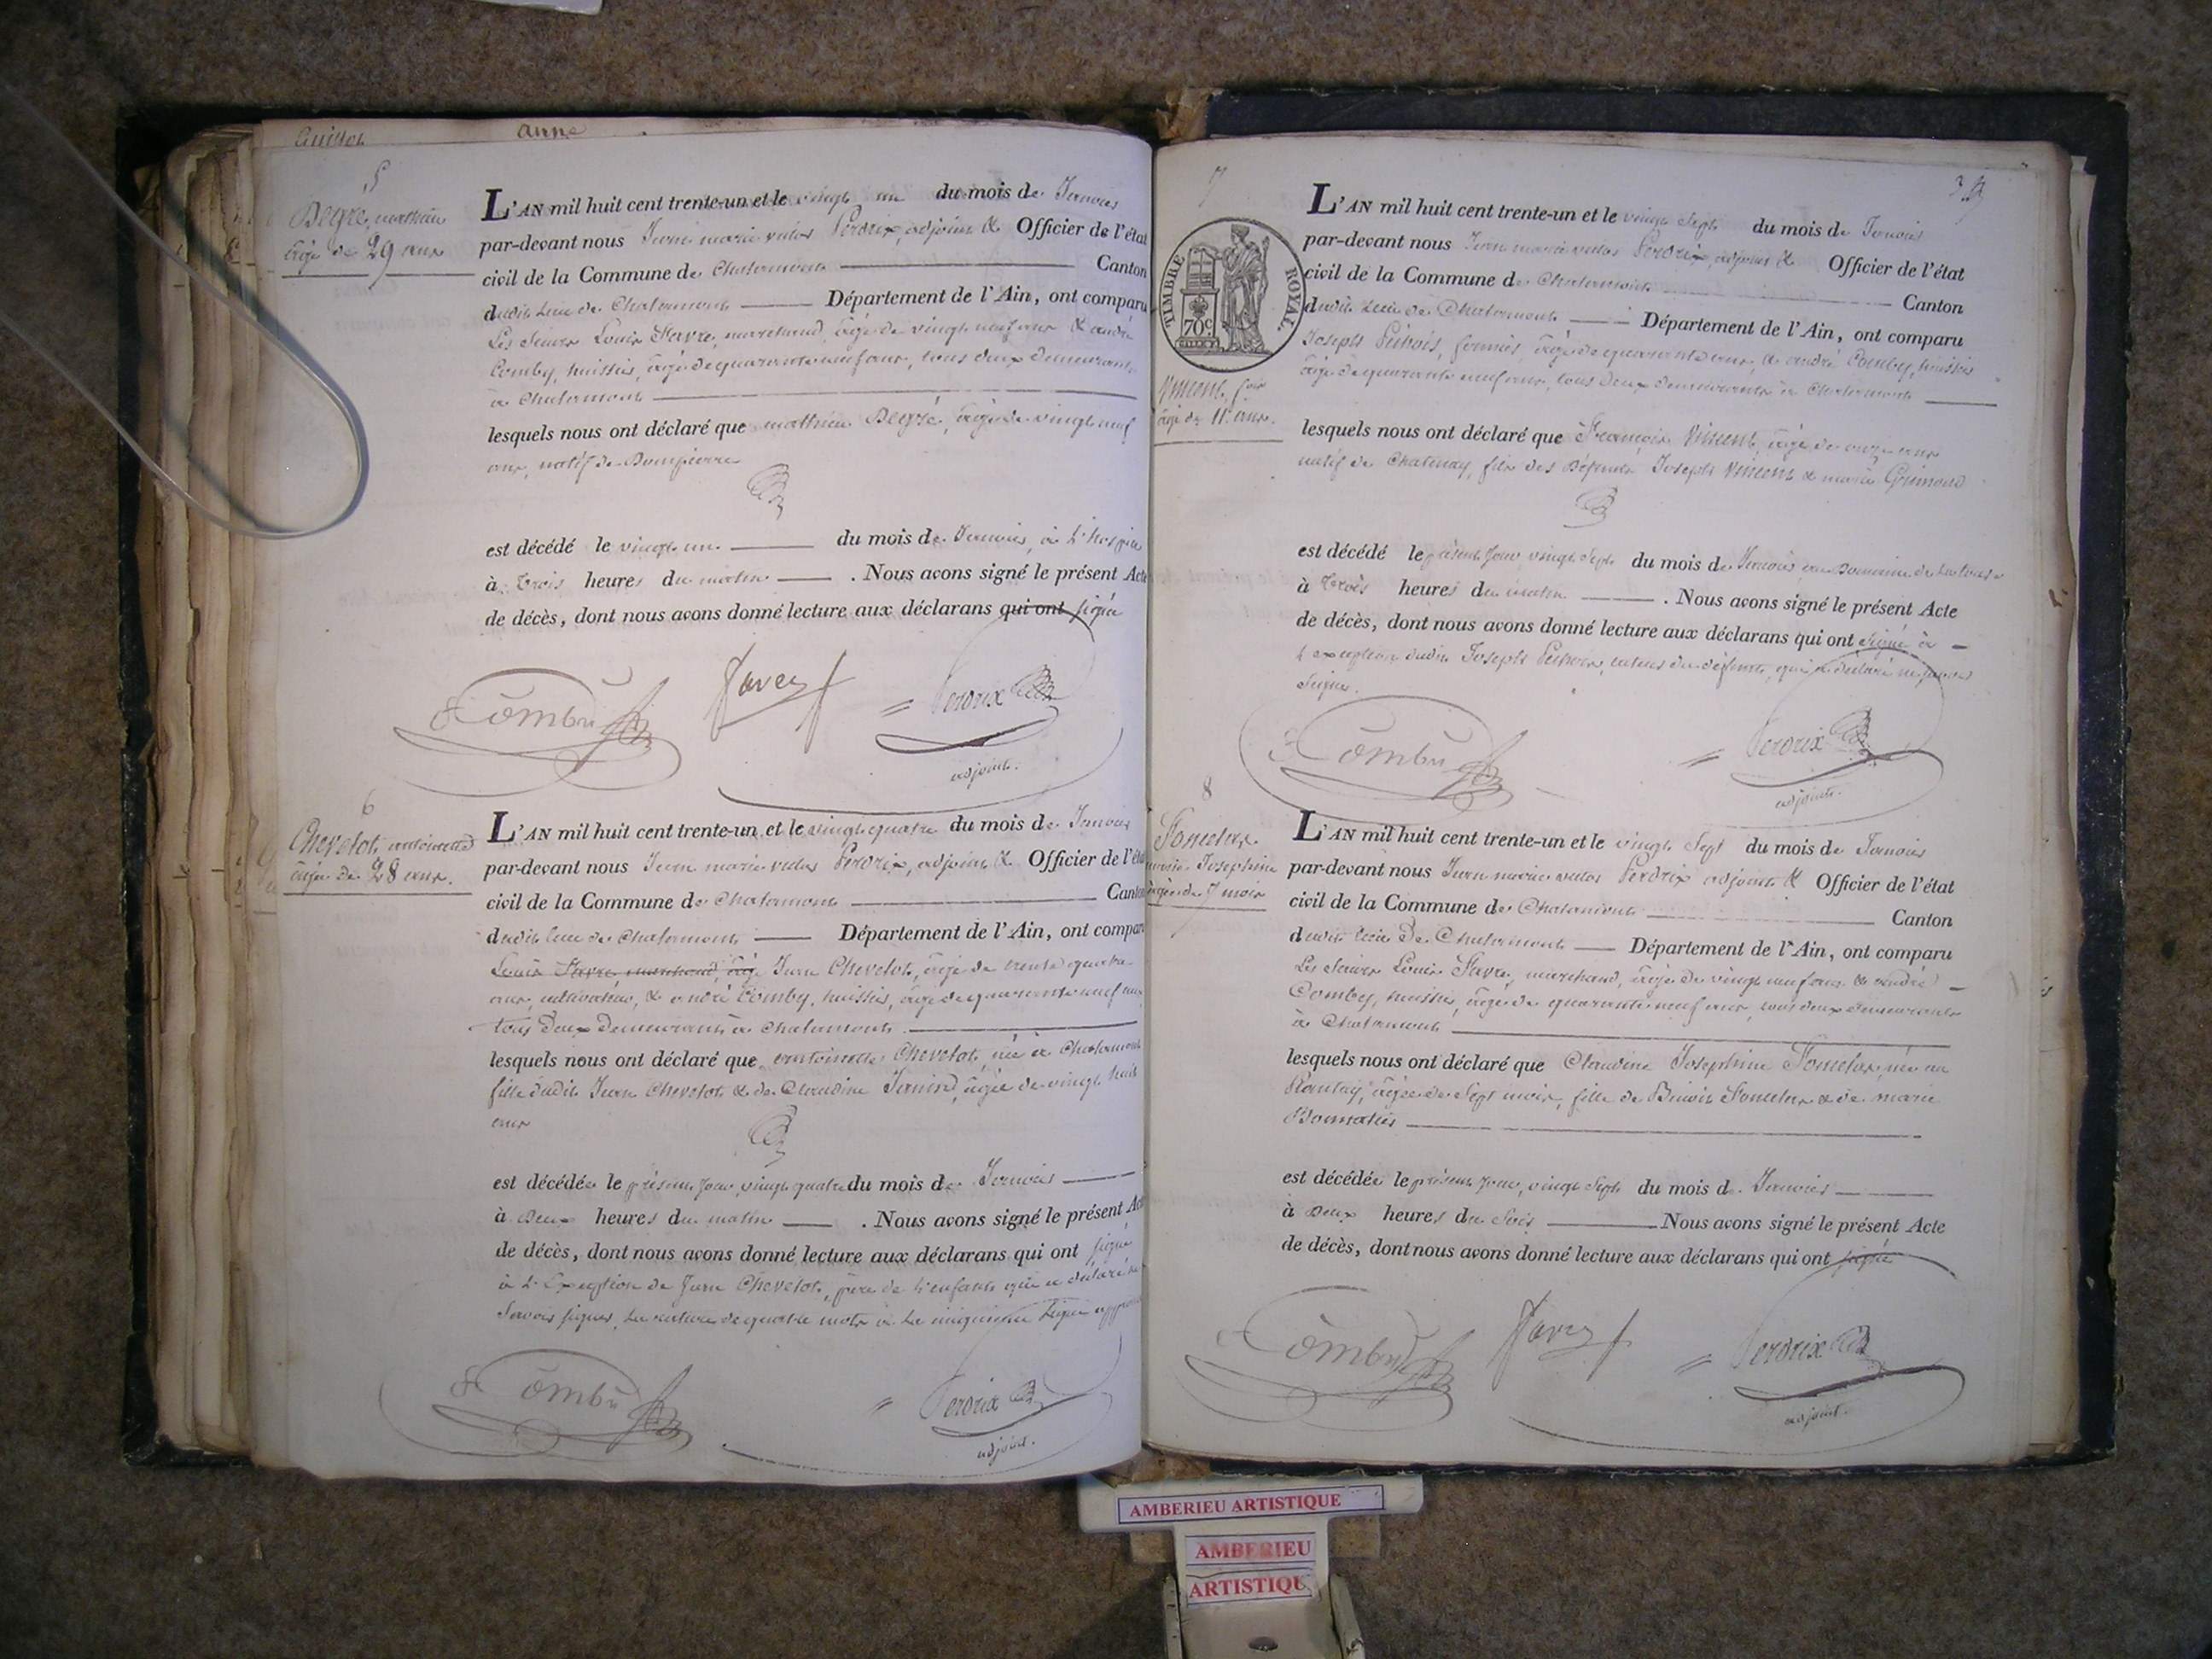 anne
5
Degré, mathieu
âgé de 29 ans
L'AN mil huit cent trente-un et le vingt un du mois de Janvier
par-devant nous Jean marie Perdrix, adjoint & Officier de l'état
civil de la Commune de Chalamont Canton
dudit Lieu de Chalamont Département de l'Ain, ont comparu
Les Sieurs Louis Favre, marchand, âgé de vingt neuf ans & andré
Comby, huissier, âgé de quarante neuf ans, tous deux demeurants
à Chalamont
lesquels nous ont déclaré que mathieu Degré, âgé de vingt neuf
ans, natif de Dompierre
est décédé le vingt un du mois de Janvier, à L'hospice
à trois heures du matin . Nous avons signé le présent Acte
de décès, dont nous avons donné lecture aux déclarans qui ont signé
Comby Favre Perdrix
adjoint.
6
Chevelot, antoinette
âgée de 28 ans.
L'AN mil huit cent trente-un et le vingt quatre du mois de Janvier
par-devant nous Jean marie Perdrix, adjoint & Officier de l'état
civil de la Commune de Chalamont Canton
dudit lieu de Chalamont Département de l'Ain, ont comparu
Louis Favre, marchand, âgé Jean Chevelot, âgé de trente quatre
ans, cultivateur, & andré Comby, huissier, âgé de quarante neuf ans
tous deux demeurants à Chalamont.
lesquels nous ont déclaré que antoinette Chevelot, née à Chalamont
fille dudit Jean Chevelot & de Claudine, âgée de vingt huit
ans
est décédée le présent jour, vingt quatre du mois de Janvier
à Deux heures du matin . Nous avons signé le présent Acte
de décès, dont nous avons donné lecture aux déclarans qui ont signé
à L'Exception de Jean Chevelot, père de L'enfant qui a déclaré ne
Savoir signer, La rature de quatre mots à La cinquième Ligne
Comby Perdrix
adjoint.
7
TIMBRE ROYAL.
70c
Vincent, fois
âgé de 11 ans.
L'AN mil huit cent trente-un et le vingt Sept du mois de Janvier
par-devant nous Jean marie Perdrix, adjoint & Officier de l'état
civil de la Commune de Chalamont Canton
dudit Lieu de Chalamont Département de l'Ain, ont comparu
Joseph, fermier, âgé de quarante ans, & andré Comby, huissier
âgé de quarante neuf ans, tous deux demeurants à Chalamont
lesquels nous ont déclaré que François Vincent, âgé de onze ans
natif de Chatenay, fils des défunts Joseph Vincent & marie
est décédé le présent jour vingt Sept du mois de Janvier au Domaine de
à trois heures du matin . Nous avons signé le présent Acte
de décès, dont nous avons donné lecture aux déclarans qui ont signé à
L'exception dudit Joseph, tuteur du défunt, qui a déclaré ne savoir
signer.
Comby Perdrix
adjoint.
8
Josephine
âgée de 7 mois
L'AN mil huit cent trente-un et le vingt Sept du mois de Janvier
par-devant nous Jean marie Perdrix adjoint & Officier de l'état
civil de la Commune de Chalamont Canton
dudit lieu De Chalamont Département de l'Ain, ont comparu
Les Sieurs Louis Favre, marchand, âgé de vingt neuf ans & andré
Comby, huissier, âgé de quarante neuf ans, tous deux demeurants
à Chalamont
lesquels nous ont déclaré que Claudine Josephine, née au
âgée de Sept mois, fille de Benoit & de marie
est décédée le présent jour, vingt Sept du mois de Janvier
à Deux heures du Soir . Nous avons signé le présent Acte
de décès, dont nous avons donné lecture aux déclarans qui ont signé
Comby Favre Perdrix
adjoint.
AMBERIEU ARTISTIQUE
AMBERIEU
ARTISTIQU